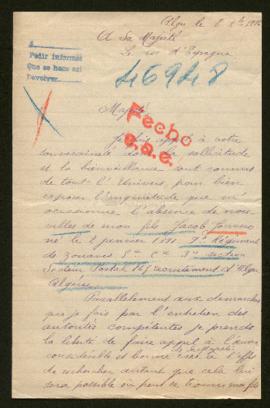 A Sa Majesté
Le roi d'Espagne
Pedir informes
Que se hace así
Devolver.
46948
Majesté
Fecho
à votre
souveraine dont la sollicitude
et la bienveillance sont connues
de tout l'Univers pour bien
exposer l'inquiétude que m'
occasionne l'absence de nou-
velles de mon fils Jacob
né le 2 janvier 1891 Régiment
de Zouaves 5e Cie 3e section
Secteur Postal recrutement d'Alger
Algérie
Parallèlement aux démarches
que je fais par l'entretien des
autorités compétentes je prends
la liberté de faire appel à l'
considérable et bonne
de rechercher autant que cela lui
sera possible où peut se trouver mon fils